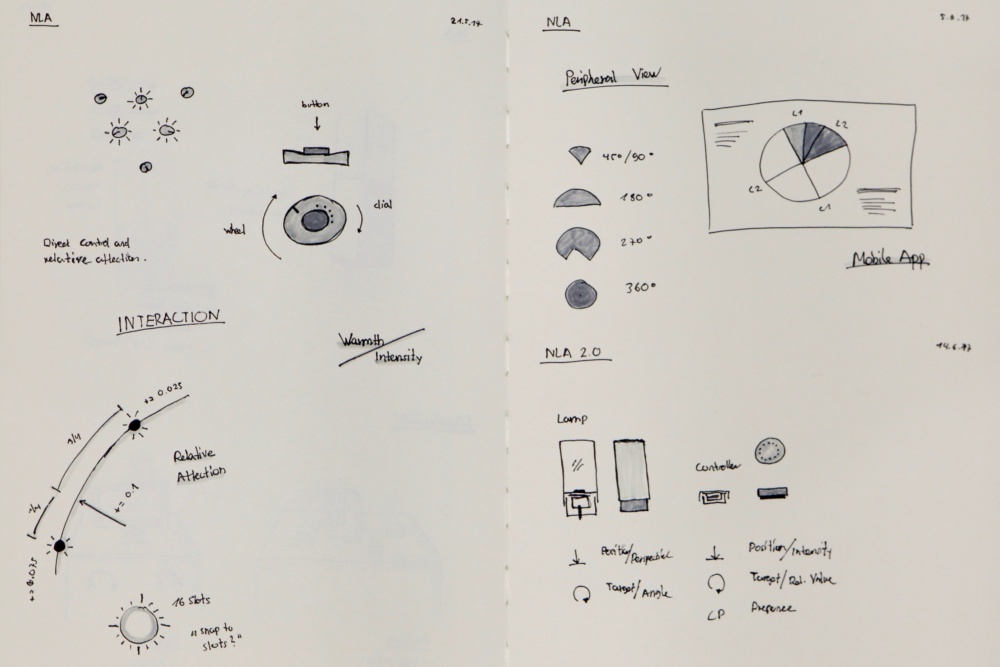 NLA
21.5.17
button
wheel
dial
Direct Control and
relative affection.
INTERACTION
Warmth
Intensity
+= 0.025
Relative
Affection
+= 0.1
16 Slots
"snap to
slots?"
NLA
Peripheral View
45°/90°
180°
270°
360°
L1
L2
L2
L1
Mobile App
NLA 2.0
14.6.17
Lamp
Controller
Position/Intensity
Target/Angle
Target/Rel. Value
CP
Presence